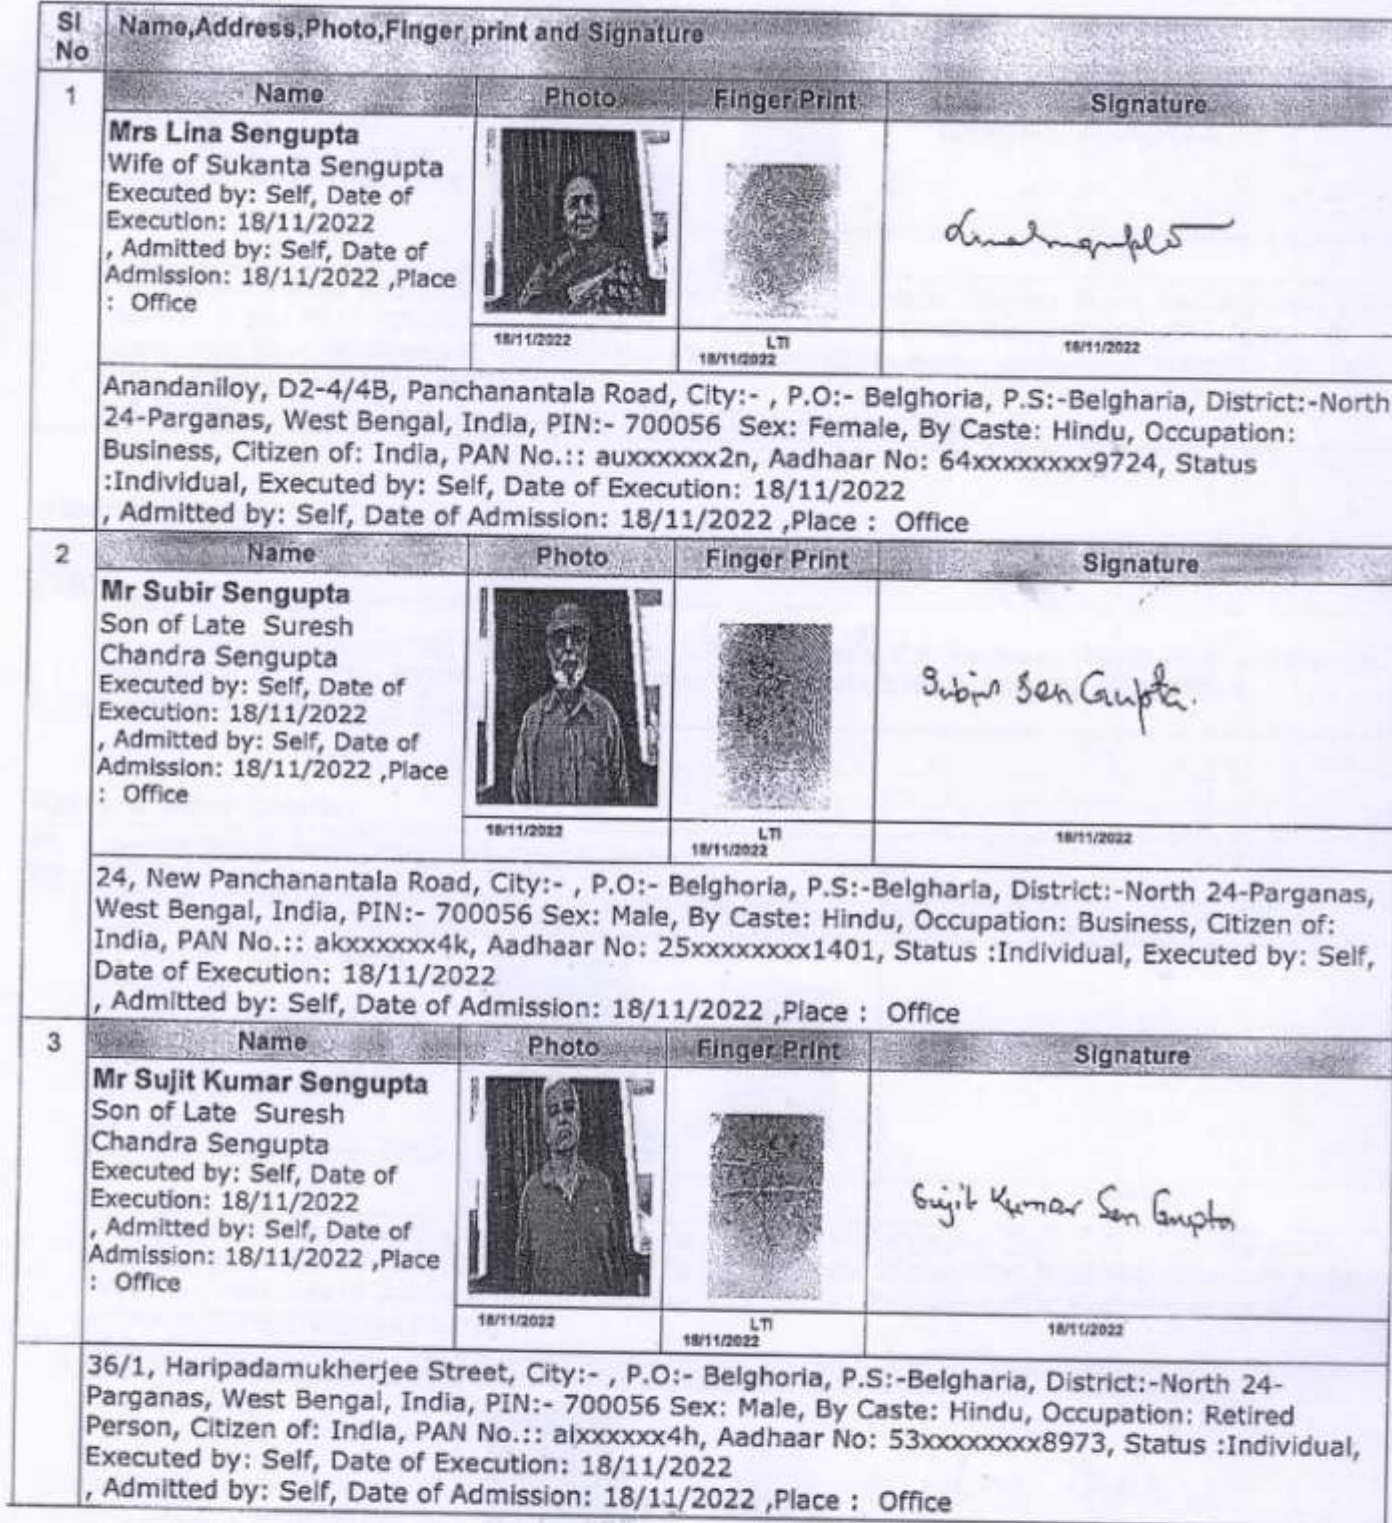 Sl No
Name,Address,Photo,Finger print and Signature
1
Name
Photo
Finger Print
Signature
Mrs Lina Sengupta
Wife of Sukanta Sengupta
Executed by: Self, Date of
Execution: 18/11/2022
, Admitted by: Self, Date of
Admission: 18/11/2022 ,Place
: Office
18/11/2022
LTI
18/11/2022
18/11/2022
Anandaniloy, D2-4/4B, Panchanantala Road, City:- , P.O:- Belghoria, P.S:-Belgharia, District:-North
24-Parganas, West Bengal, India, PIN:- 700056 Sex: Female, By Caste: Hindu, Occupation:
Business, Citizen of: India, PAN No.:: auxxxxxx2n, Aadhaar No: 64xxxxxxxx9724, Status
:Individual, Executed by: Self, Date of Execution: 18/11/2022
, Admitted by: Self, Date of Admission: 18/11/2022 ,Place : Office
2
Name
Photo
Finger Print
Signature
Mr Subir Sengupta
Son of Late Suresh
Chandra Sengupta
Executed by: Self, Date of
Execution: 18/11/2022
, Admitted by: Self, Date of
Admission: 18/11/2022 ,Place
: Office
Subir Sen Gupta.
18/11/2022
LTI
18/11/2022
18/11/2022
24, New Panchanantala Road, City:- , P.O:- Belghoria, P.S:-Belgharia, District:-North 24-Parganas,
West Bengal, India, PIN:- 700056 Sex: Male, By Caste: Hindu, Occupation: Business, Citizen of:
India, PAN No.:: akxxxxxx4k, Aadhaar No: 25xxxxxxxx1401, Status :Individual, Executed by: Self,
Date of Execution: 18/11/2022
, Admitted by: Self, Date of Admission: 18/11/2022 ,Place : Office
3
Name
Photo
Finger Print
Signature
Mr Sujit Kumar Sengupta
Son of Late Suresh
Chandra Sengupta
Executed by: Self, Date of
Execution: 18/11/2022
, Admitted by: Self, Date of
Admission: 18/11/2022 ,Place
: Office
Sujit Kumar Sen Gupta
18/11/2022
LTI
18/11/2022
18/11/2022
36/1, Haripadamukherjee Street, City:- , P.O:- Belghoria, P.S:-Belgharia, District:-North 24-
Parganas, West Bengal, India, PIN:- 700056 Sex: Male, By Caste: Hindu, Occupation: Retired
Person, Citizen of: India, PAN No.:: aixxxxxx4h, Aadhaar No: 53xxxxxxxx8973, Status :Individual,
Executed by: Self, Date of Execution: 18/11/2022
, Admitted by: Self, Date of Admission: 18/11/2022 ,Place : Office